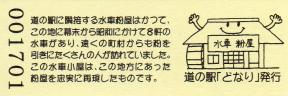 001701
道の駅に隣接する水車粉屋はかつて、
この地に幕末から昭和にかけて8軒の
水車があり、遠くの町村からも粉を
引きにたくさんの人が訪れていました。
この水車小屋は、この地方にあった
粉屋を忠実に再現したものです。
水車 粉屋
道の駅「となり」発行